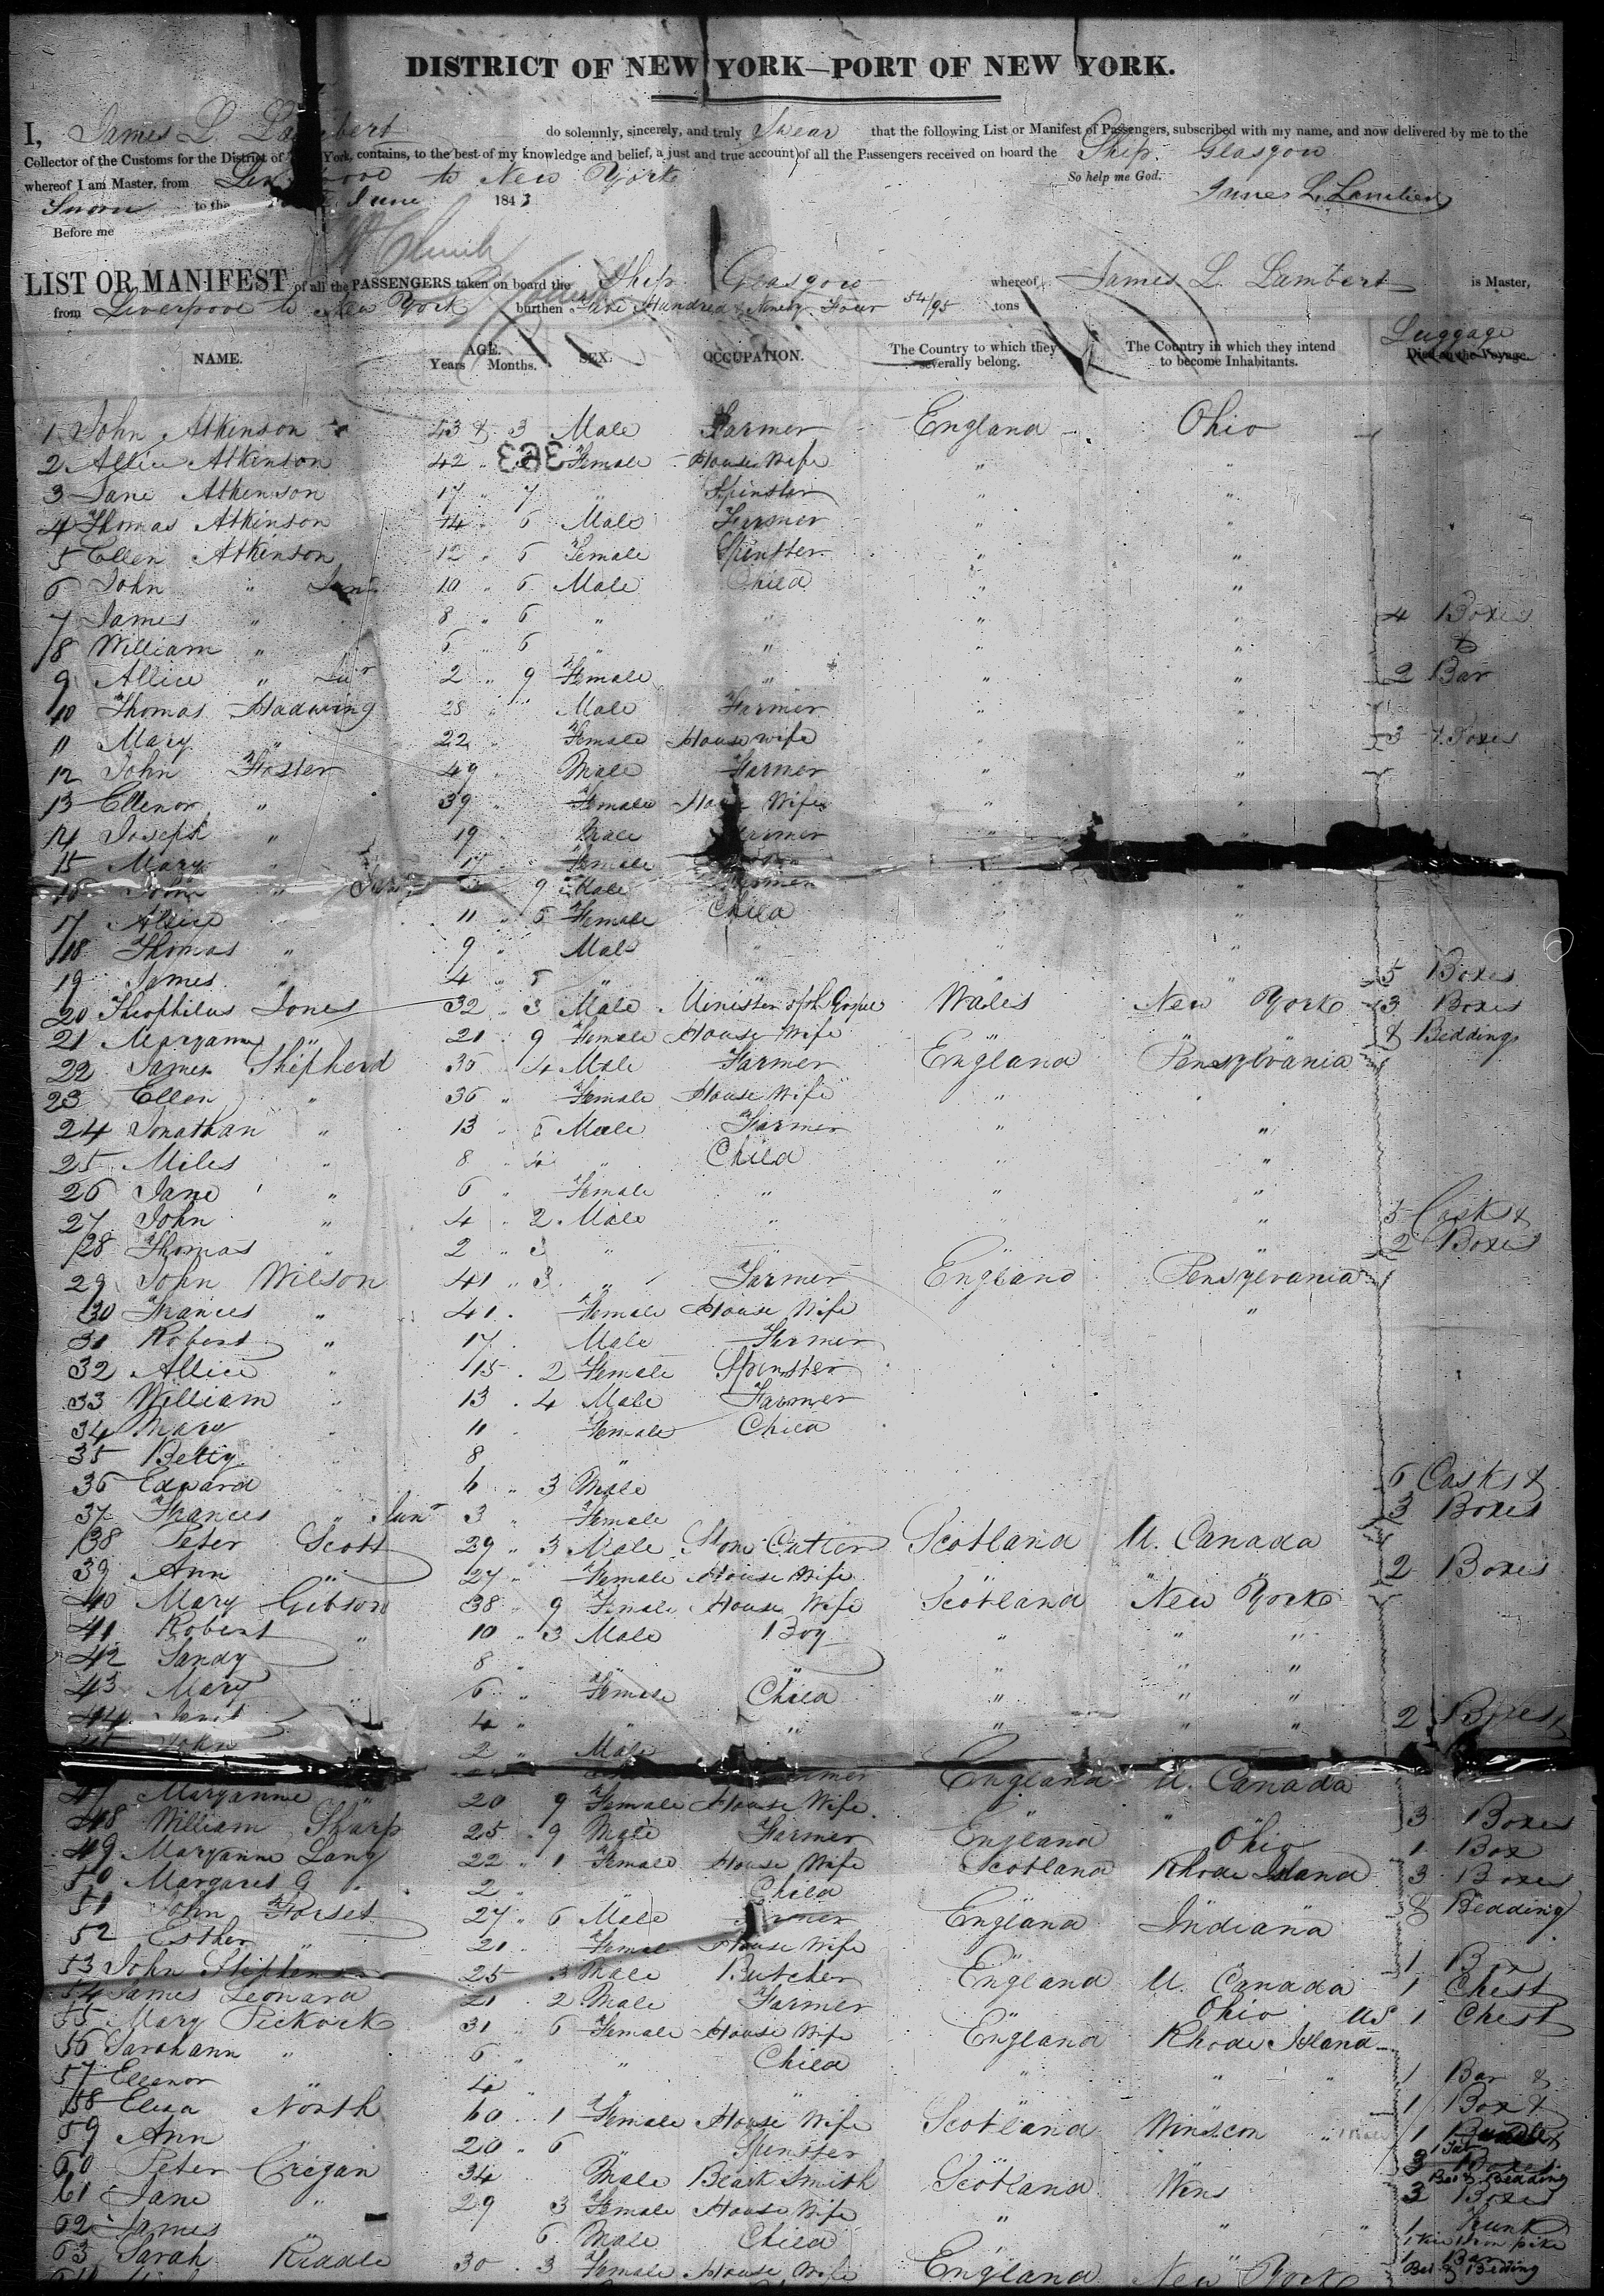 DISTRICT OF NEW YORK—PORT OF NEW YORK.
I, James L. Lambert do solemnly, sincerely, and truly Swear that the following List or Manifest of Passengers, subscribed with my name, and now delivered by me to the
Collector of the Customs for the District of York, contains, to the best of my knowledge and belief, a just and true account of all the Passengers received on board the Ship Glasgow
whereof I am Master, from Liverpool to New York So help me God.
Sworn to the June 1843 James L. Lambert
Before me
LIST OR MANIFEST of all the PASSENGERS taken on board the Ship Glasgow whereof James L. Lambert is Master,
from Liverpool to New York burthen Five Hundred & Ninety Four 54/95 tons
Luggage
NAME. AGE. Years Months. SEX. OCCUPATION. The Country to which they severally belong. The Country in which they intend to become Inhabitants. Died on the Voyage.
1 John Atkinson 43 & 3 Male Farmer England Ohio
2 Allice Atkinson 42 " Female House Wife " "
3 Jane Atkinson 17 " 7 " Spinster " "
4 Thomas Atkinson 14 " 6 Male Farmer " "
5 Ellen Atkinson 12 " 6 Female Spinster " "
6 John " Junr 10 " 6 Male Child " "
7 James " 8 " 6 " " " " 4 Boxes
8 William " 6 " 6 " " " " &
9 Allice " Junr 2 " 9 Female " " " 2 Bar
10 Thomas Hadwing 28 " " Male Farmer " "
11 Mary " 22 " Female House wife " " 3 Boxes
12 John Foster 49 " Male Farmer " "
13 Ellenor " 39 " Female House Wife " "
14 Joseph " 19 " Male Farmer " "
15 Mary " Female
16 John " Junr 9 Male Farmer " "
17 Allice 11 " 6 Female Child " "
18 Thomas " 9 " Male " "
19 James " 4 " 6 " " " 5 Boxes
20 Theophilus Jones 32 " 3 Male Minister of the Gospel Wales New York 3 Boxes
21 Maryanne " 21 " 9 Female House Wife " " & Bedding
22 James Shepherd 35 4 Male Farmer England Pensylvania
23 Ellen " 36 " Female House Wife " "
24 Jonathan " 13 " 6 Male Farmer " "
25 Miles " 8 " 4 " Child " "
26 Jane " 6 " Female " " "
27 John " 4 " 2 Male " " " 5 Casks &
28 Thomas " 2 " 3 " " 2 Boxes
29 John Wilson 41 " 3 " Farmer England Pensylvania
30 Frances " 41 " Female House Wife "
31 Robert " 17 Male Farmer
32 Allice " 15 " 2 Female Spinster
33 William " 13 " 4 Male Farmer
34 Mary " 11 Female Child
35 Betty " 8 "
36 Edward " 6 " 3 Male 6 Casks &
37 Frances " Junr 3 " Female 3 Boxes
38 Peter Scott 29 " 3 Male Stone Cutter Scotland U. Canada
39 Ann " 27 " Female House Wife " " 2 Boxes
40 Mary Gibson 38 " 9 Female House Wife Scotland New York
41 Robert " 10 " 3 Male Boy " " "
42 Sandy 8 " " " " " "
43 Mary " 6 " Female Child " " "
44 4 " " " " " " 2 Boxes
45 John 2 " Male
England U. Canada
47 Maryanne " 20 9 Female House Wife " " 3 Boxes
48 William Sharp 25 " 9 Male Farmer England Ohio 1 Box
49 Maryanne Lang 22 " 1 Female House Wife Scotland Rhode Island 3 Boxes
50 Margaret G " 2 " " Child & Bedding
51 John Forset 27 " 6 Male Farmer England Indiana
52 Esther " 21 " Female House Wife " " 1 Box
53 John Stephenson 25 3 Male Butcher England U. Canada 1 Chest
54 James Leonard 21 " 2 Male Farmer " Ohio US 1 Chest
55 Mary Pickock 31 " 6 Female House Wife England Rhode Island
56 Sarahann " 6 " " Child " " "
57 Ellenor " 4 " " " 1 Bar &
58 Elisa North 60 " 1 Female House Wife Scotland Winscon 1 Box &
59 Ann " 20 " 6 " Spinster 1
60 Peter Cregan 34 Male Black Smith Scotland Wins 3 Boxes Bed & Bedding
61 Jane " 29 3 Female House Wife " " " 3 Boxes
62 James " 6 Male Child 1 Trunk
63 Sarah Riddle 30 " 3 Female House Wife England New York 1 Bar Bed & Bedding